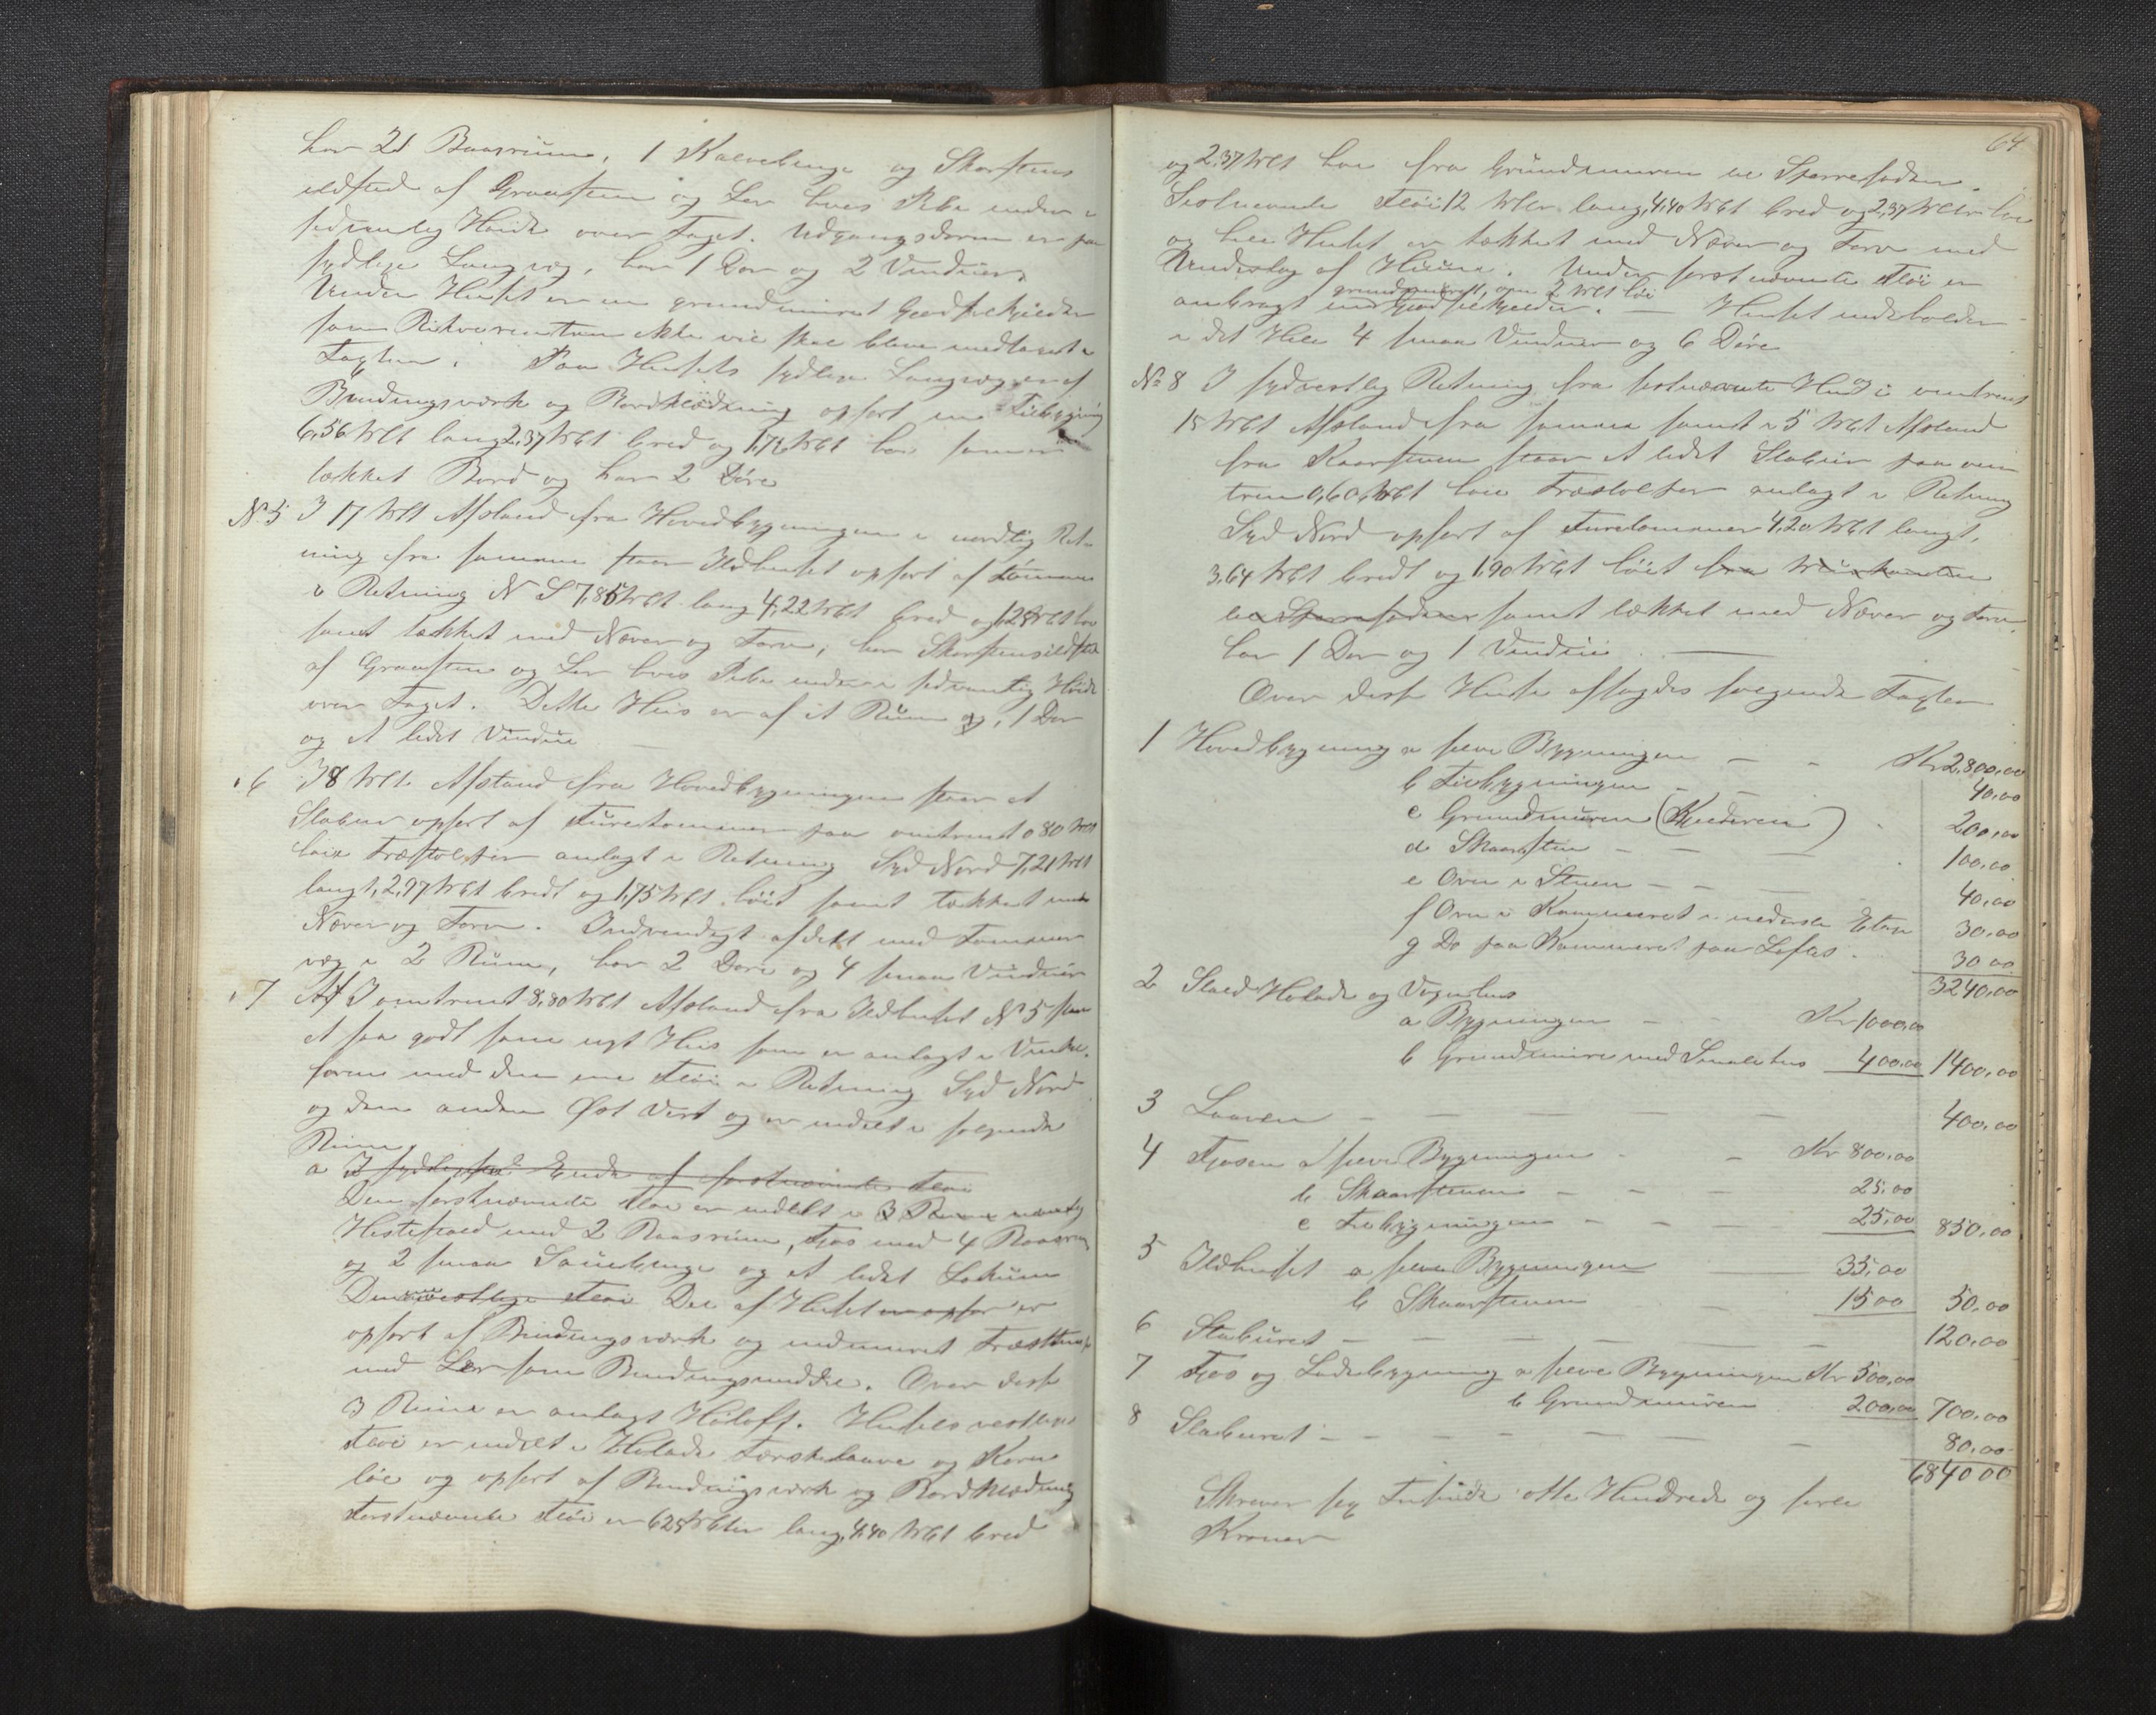 har 21 Baasrum, 1 Kalvebinge og Skorstens
ildsted af Graasten og Ler hvis Pibe ender i
sedvanlig Høide over Taget. Udgangsdøren er paa
sydlige Langvæg, har 1 Dør og 2 Vinduer.
Under Huset er en grundmuret Gjødselkjelder
som Rekvirenten ikke vil skal blive medtaget i
Taxten. Paa Husets sydlige Langvæg er af
Bindingsværk og Bordklædning opført en Tilbygning
6,56 Met lang 2,37 Met bred og 1,72 Met høi som er
tækket Bord og har 2 Døre
No 5 I 17 Met Afstand fra Hovedbygningen i nordlig Ret-
ning fra samme staar Ildhuset opført af Tømmer
i Retning N S 7,85 Met lang 4,22 Met bred og 1,25 Met høi
samt tækket med Næver og Torv, har Skorstensildsted
af Graasten og Ler hvis Pibe ender i sedvanlig Høide
over Taget. Dette Hus er af et Rum og, 1 Dør
og et lidet Vindue
" 6 I 8 Met Afstand fra Hovedbygningen staar et
Stabur opført af Furutømmer paa omtrent 0 80 Met
høie Træstolper anlagt i Retning Syd Nord 7,21 Met
langt, 2,97 Met bredt og 1,75 Met høit samt tækket med
Næver og Torv. Indvendigt afdelt med Tømmer
væg i 2 Rum, har 2 Døre og 4 smaa Vinduer
" 7 I omtrent 8,80 Met Afstand fra Ildhuset No 5 staar
et saa godt som nyt Hus som er anlagt i Vinkel-
form med den ene Fløi i Retning Syd Nord
og den anden Øst Vest og er indelt i følgende
Rum
a I Ende af førstnævnte Fløi
Den førstnævnte Fløi er indelt i 3 Rum nemlig
Hestestald med 2 Baasrum, Fjøs med 4 Baasrum
og 2 smaa Sauebinge og et lidet Lokum
Den Fløi Del af Huset er opfør er
opført af Bindingsværk og indmuret Træ
med Ler som Bindingsmiddel. Over disse
3 Rum er anlagt Høloft. Husets vestlige
Fløi er indelt i Hølade Tærskelaave og Korn
løe og opført af Bindingsværk og Bordklædning
Førstnævnte Fløi er 6 25 Meter lang, 4,40 Met bred
64
og 2,37 Met høi fra Grundmuren til Sperrefoden.
Sistnævnte Fløi 12 Meter lang, 4,40 Met bred og 2,37 Meter høi
og hele Huset er tækket med Næver og Torv med
Underlag af Hun. Under førstnævnte Fløi er
grundmuret, om 2 Met høi
anbragt en Gjødselkjelder. — Huset indeholder
i det Hele 4 smaa Vinduer og 6 Døre
No 8 I sydvestlig Retning fra sistnævnte Hus i omtrent
15 Met Afstand fra samme samt i 5 Met Afstand
fra staar et lidet Stabur paa om
trent 0,60 Met høie Træstolper anlagt i Retning
Syd Nord opført af Furutømmer 4,20 Met langt,
3,64 Met bredt og 1,90 Met høit fra
til Sperrefoden samt tækket med Næver og Torv,
har 1 Dør og 1 Vindue. —
Over disse Huse afsagdes følgende Taxter
1 Hovedbygning a selve Bygningen — — Kr 2,800,00
b Tilbygningen — — 40,00
c Grundmuren (Kjelderen) " 200,00
d Skaarsten — — — 100,00
e Ovn i Stuen — — — 40,00
f Ovn i Kammeret i nederste Etage 30,00
g Do paa Kammeret paa Loftet. 30 00
3240,00
2 Stald Hølade og Vognhus
a Bygningen — — Kr 1000,00
b Grundmure med Smalehus 400,00 1400,00
3 Laaven — — — — — 400,00
4 Fjøsen a selve Bygningen - — Kr 800,00
b Skaarstenen — — — 25,00
c Tilbygningen — — — 25,00 850,00
5 Ildhuset a selve Bygningen — 35,00
b Skaarstenen — 15 00 50,00
6 Staburet — — — — — 120,00
7 Fjøs og Ladebygning a selve Bygningen Kr 500,00
b Grundmuren 200,00 700,00
8 Staburet — — — — — 80,00
6840 00
Skriver sex Tusinde otte Hundrede og firti
Kroner